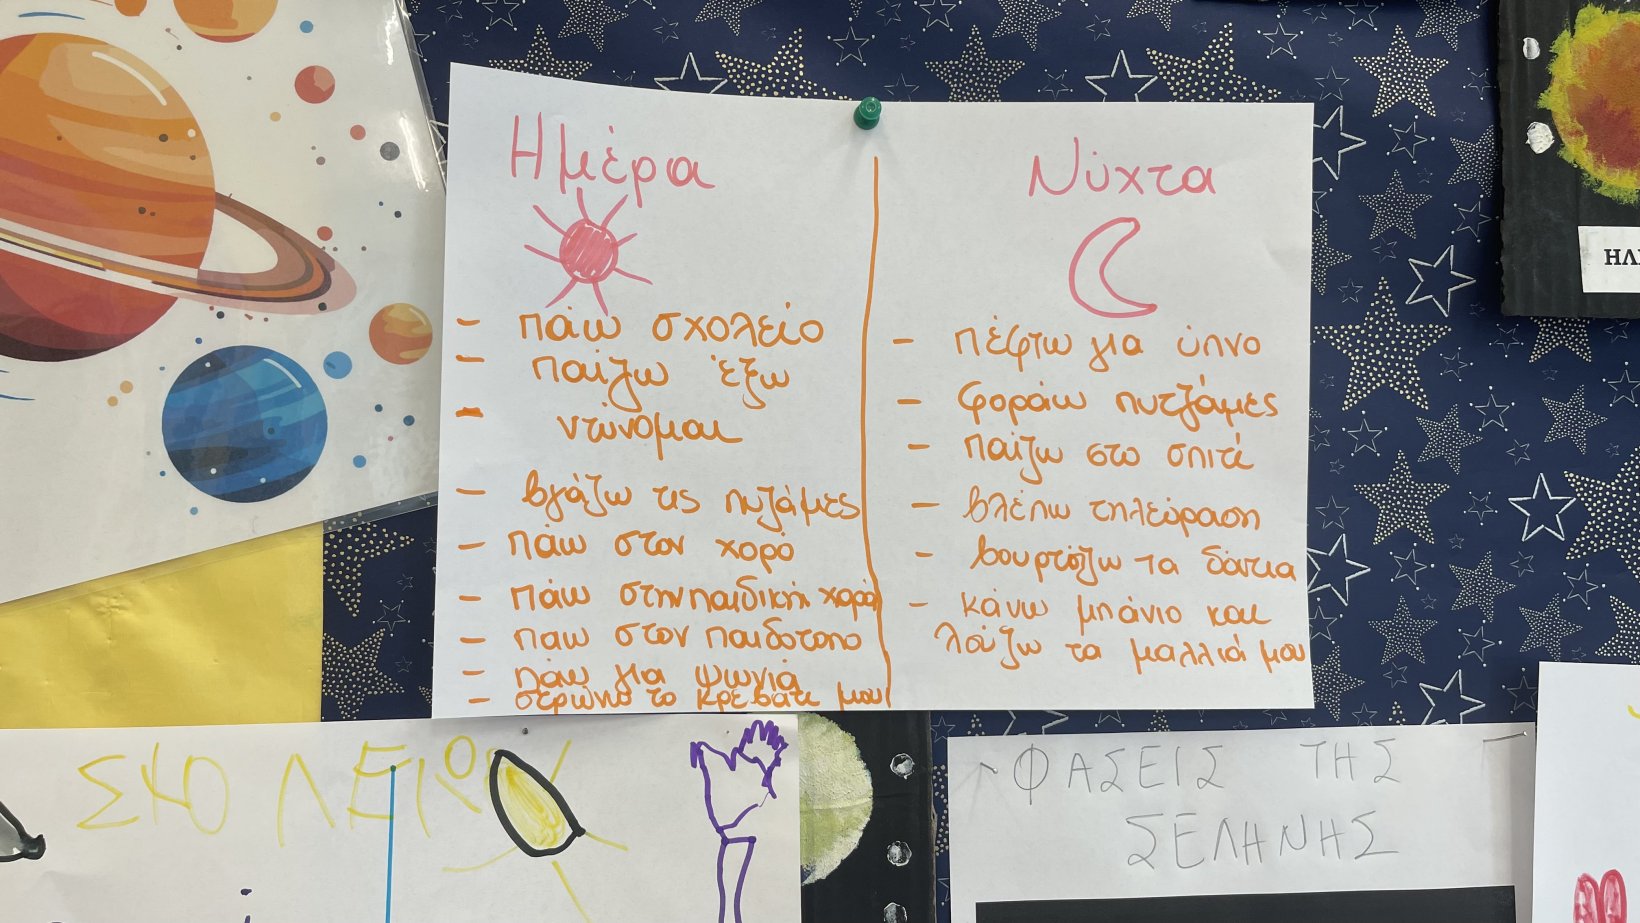 Ημέρα
- πάω σχολείο
- παίζω έξω
- ντύνομαι
- βγάζω τις πυζάμες
- πάω στον χορό
- πάω στην παιδική χαρά
- παω στον παιδοτοπο
- πάω για ψωνιά
- στρώνω το κρεβάτι μου
Νύχτα
- πέφτω για ύπνο
- φοράω πυτζάμες
- παίζω στο σπίτι
- βλέπω τηλεόραση
- βουρτσίζω τα δόντια
- κάνω μπάνιο και
λούζω τα μαλλιά μου
ΦΑΣΕΙΣ ΤΗΣ
ΣΕΛΗΝΗΣ